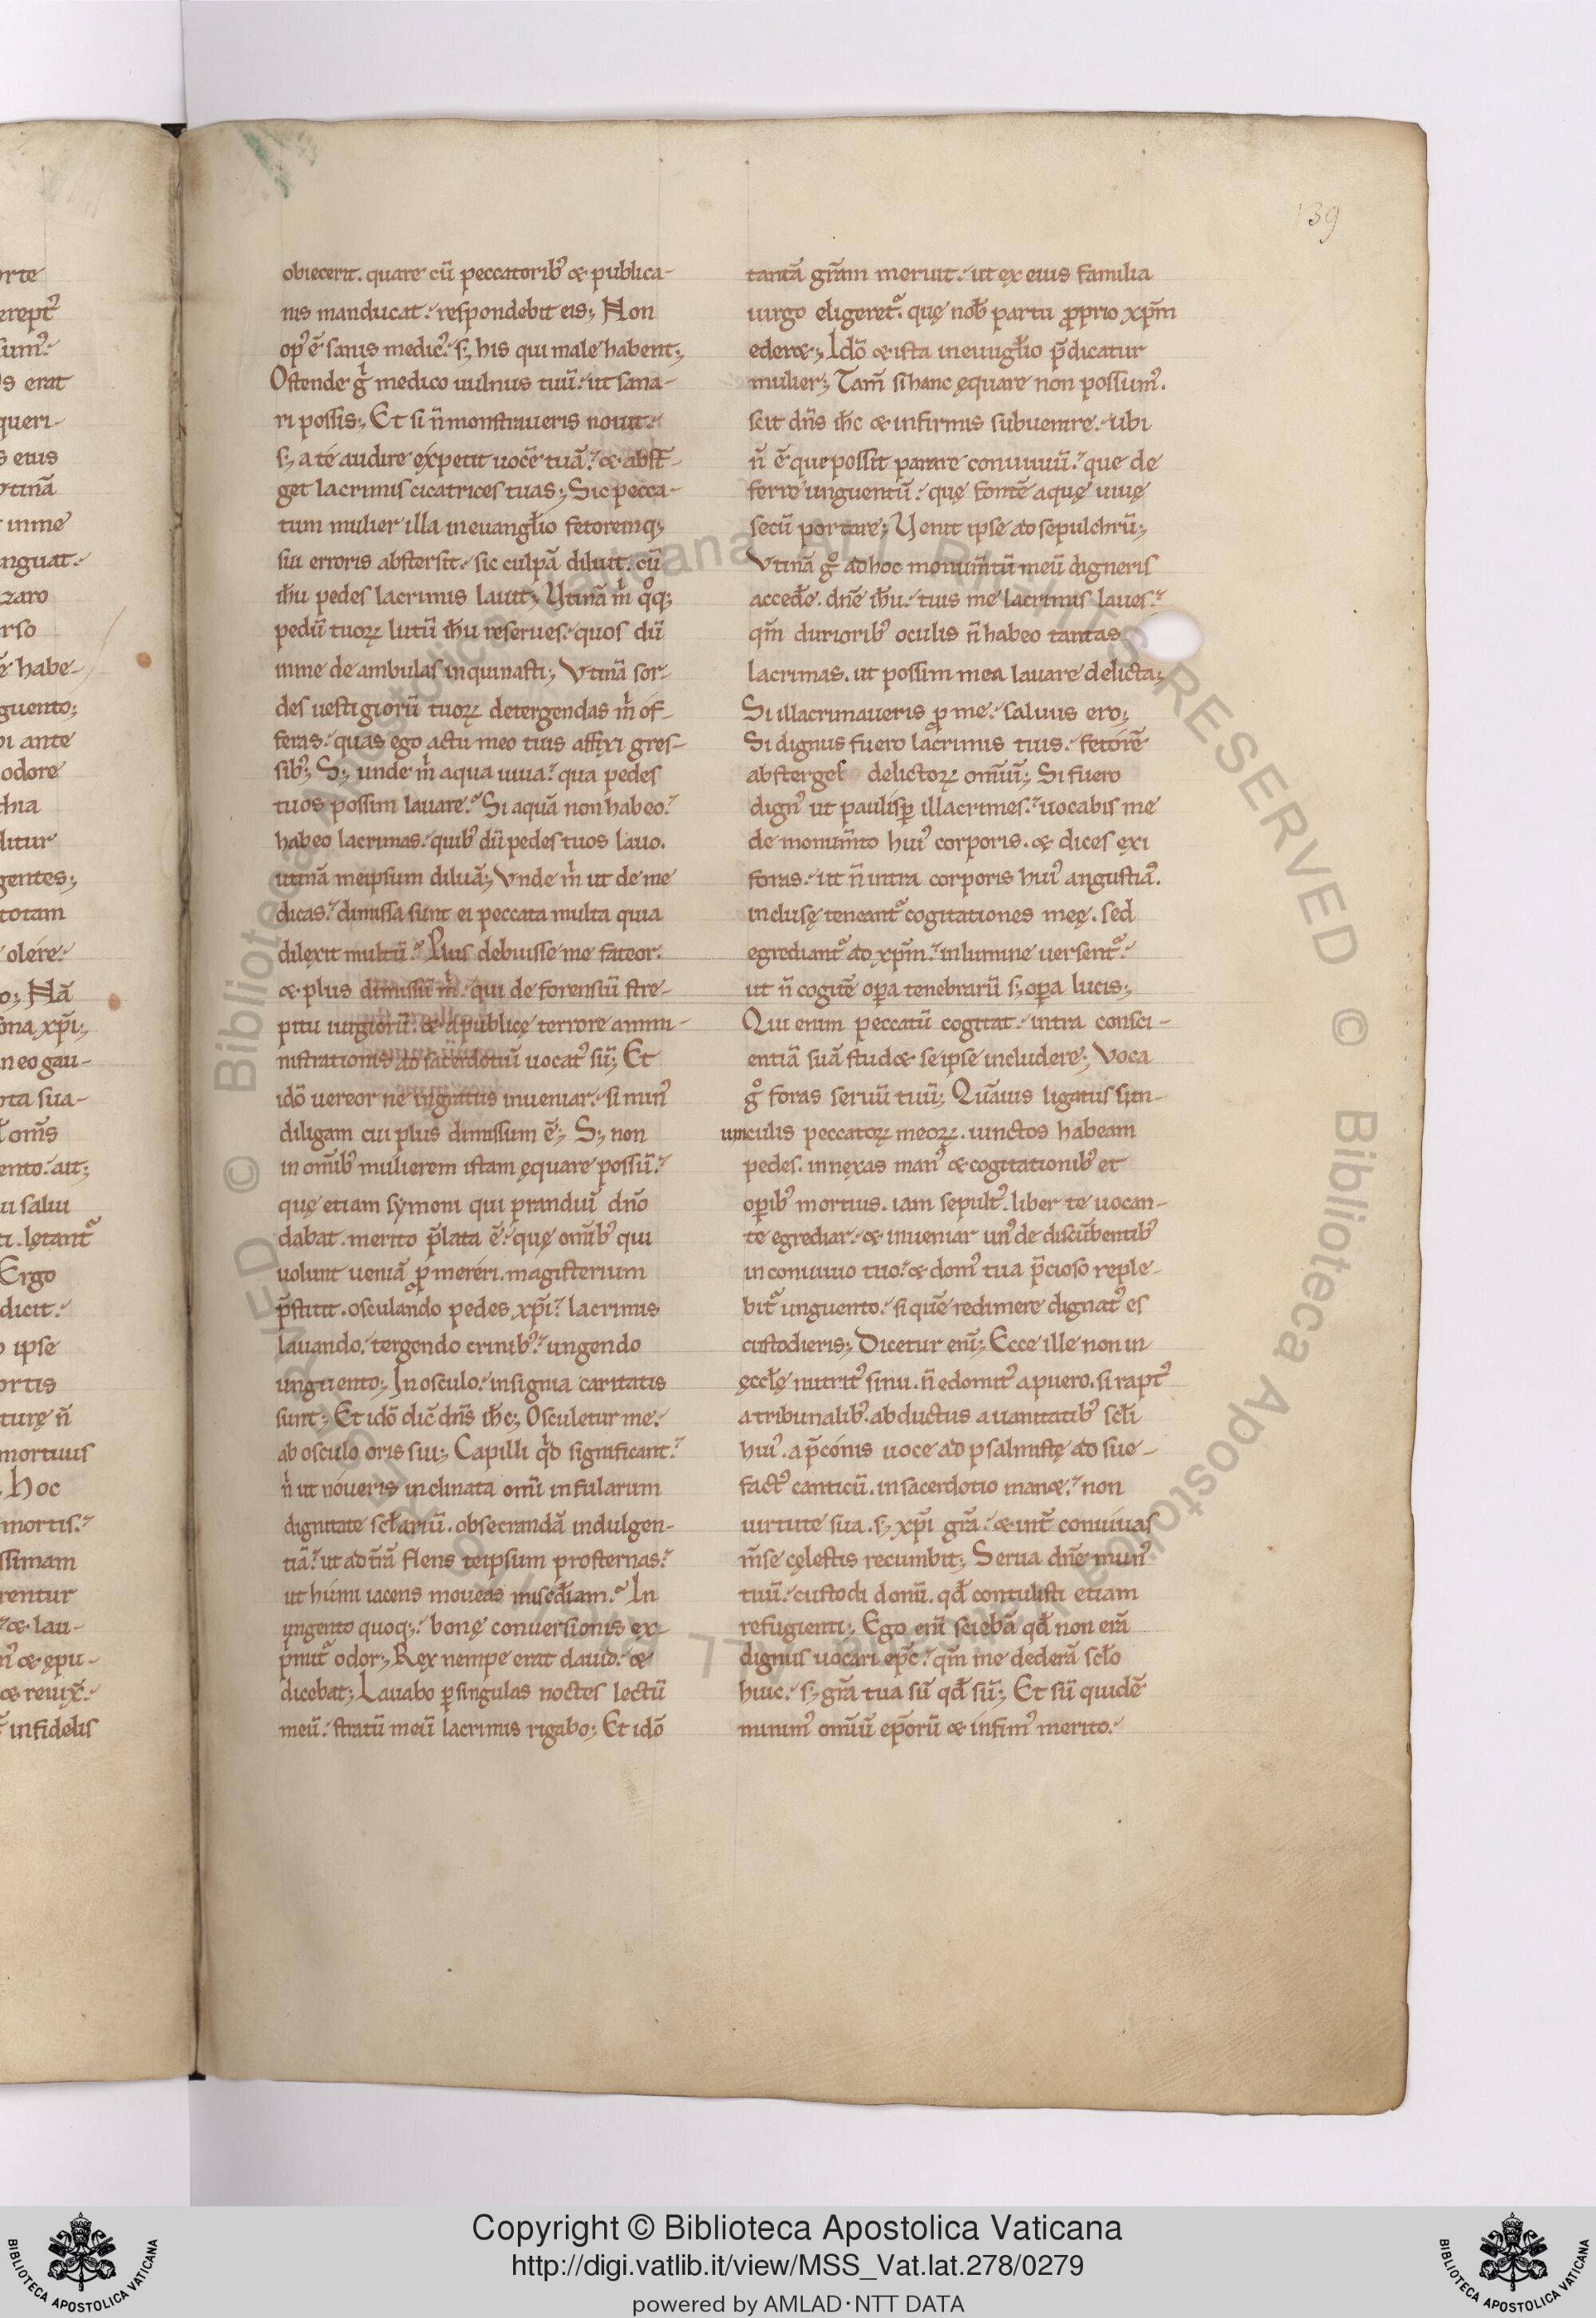 139
orte
erept᷒
sum᷒.
s erat
queri-
s eius
vtinā
inme
nguat.
zaro
rso
ē habe-
guento;
bi ante
odore
thia
ditur
gentes;
totam
olere.
o; Nā
ona xp̄i;
neo gau-
ota sua-
om̄s
ento. ait;
ui salui
ti. lętant᷑
Ergo
dicit.
o ipse
ortis
turę n̄
mortuus
. Hoc
mortis.
ssimam
rentur
& lau-
& epu-
& reuix̄.
infidelis
obiecerit. quare cū peccatorib᷒ & publica-
nis manducat. respondebit eis; Non
op᷒ ē sanis medic᷒. s; his qui male habent;
Ostende gͥ medico uulnus tuū. ut sana-
ri possis; Et si n̄ monstraueris nouit.
s; a te audire expetit uocē tuā. & abst̄-
get lacrimis cicatrices tuas; Sic pecca-
tum mulier illa in euangl̄io fetoremq;
sui erroris abstersit. sic culpā diluit. cū
ih̄u pedes lacrimis lauit; Vtinā mͥ qͦq;
pedū tuoꝝ lutū ih̄u reserues. quos dū
inme de ambulas inquinasti; Vtinā sor-
des uestigiorū tuoꝝ detergendas mͥ of-
feras. quas ego actu meo tuis affixi gres-
sib᷒; S; unde mͥ aqua uiua. qua pedes
tuos possim lauare. Si aquā non habeo.
habeo lacrimas. quib᷒ dū pedes tuos lauo.
utinā meipsum diluā; Vnde mͥ ut de me
dicas. dimissa sunt ei peccata multa quia
dilexit multū. Plus debuisse me fateor.
& plus dimissū mͥ. qui de forensiū stre-
pitu iurgiorū. & a publicę terrore ammi-
nistrationis ad sacerdotiū uocat᷒ sū; Et
idō uereor ne ingratus inueniar. si min᷒
diligam cui plus dimissum ē; S; non
in om̄ib᷒ mulierem istam ęquare possū.
quę etiam symoni qui prandiū dn̄o
dabat. merito p̄lata ē. quę om̄ib᷒ qui
uolunt ueniā ꝓmereri. magisterium
p̄stitit. osculando pedes xp̄i. lacrimis
lauando. tergendo crinib᷒. ungendo
unguento; In osculo. insignia caritatis
sunt; Et idō dic̄ dn̄s ih̄c; Osculetur me.
ab osculo oris sui; Capilli qͥd significant.
nͥ ut noueris inclinata omī infularum
dignitate scl̄ariū. obsecrandā indulgen-
tiā. ut ad t̄rā flens teipsum prosternas.
ut humi iacens moueas misc̄diam. In
ungento quoq;. bonę conuersionis ex-
p̄mit᷑ odor; Rex nempe erat dauid. &
dicebat; Lauabo ꝑ singulas noctes lectū
meū. stratū meū lacrimis rigabo; Et idō
tantā gr̄am meruit. ut ex eius familia
uirgo eligeret᷑. quę nob̄ partu ꝓprio xp̄m
eder&; Idō & ista in euugl̄io p̄dicatur
mulier; Tam̄ si hanc ęquare non possum᷒.
scit dn̄s ih̄c & infirmis subuenire. ubi
n̄ ē que possit parare conuiuiū. que de
ferre unguentū. quę fontē aquę uiuę
secū portare; Venit ipse ad sepulchrū;
Vtinā gͦ ad hoc monum̄tū meū digneris
acced̄e. dn̄e ih̄u. tuis me lacrimis laues.
qm̄ duriorib᷒ oculis n̄ habeo tantas
lacrimas. ut possim mea lauare delicta;
Si illacrimaueris ꝓ me. saluus ero;
Si dignus fuero lacrimis tuis. fetorē
absterges delictoꝝ om̄iū; Si fuero
dign᷒ ut paulisꝑ illacrimes. uocabis me
de monum̄to hui᷒ corporis. & dices exi
foras. ut n̄ intra corporis hui᷒ angustiā.
inclusę teneant᷑ cogitationes meę. sed
egrediant᷑ ad xp̄m. in lumine uersent᷑.
ut n̄ cogitē oꝑa tenebrarū s; oꝑa lucis;
Qui enim peccatū cogitat. intra consci-
entiā suā stud& se ipse includere; Voca
gͦ foras seruū tuū; Quāuis ligatus sim-
uinculis peccatoꝝ meoꝝ. uinctos habeam
pedes. innexas man᷒ & cogitationib᷒ et
oꝑib᷒ mortuis. iam sepult᷒. liber te uocan-
te egrediar. & inueniar un᷒ de discūbentib᷒
in conuiuio tuo. & dom᷒ tua p̄cioso reple-
bit᷑ unguento. si quē redimere dignat᷒ es
custodieris; Dicetur enī; Ecce ille non in
ęccl̄ę nutrit᷒ sinu. n̄ edomit᷒ a puero. si rapt᷒
a tribunalib᷒. abductus a uanitatib᷒ scl̄i
hui᷒. a p̄conis uoce ad psalmistę ad sue-
fact᷒ canticū. in sacerdotio man&. non
uirtute sua. s; xp̄i gr̄a. & int̄ conuiuas
m̄se cęlestis recumbit; Serua dn̄e mun᷒
tuū. custodi donū. qd̄ contulisti etiam
refugienti; Ego enī sciebā qd̄ non erā
dignus uocari ep̄c. qm̄ me dederā scl̄o
huic. s; gr̄a tua sū qd̄ sū; Et sū quidē
minim᷒ om̄iū ep̄orū & infim᷒ merito.
Copyright © Biblioteca Apostolica Vaticana
http://digi.vatlib.it/view/MSS_Vat.lat.278/0279
powered by AMLAD·NTT DATA
BIBLIOTECA APOSTOLICA VATICANA
BIBLIOTECA APOSTOLICA VATICANA